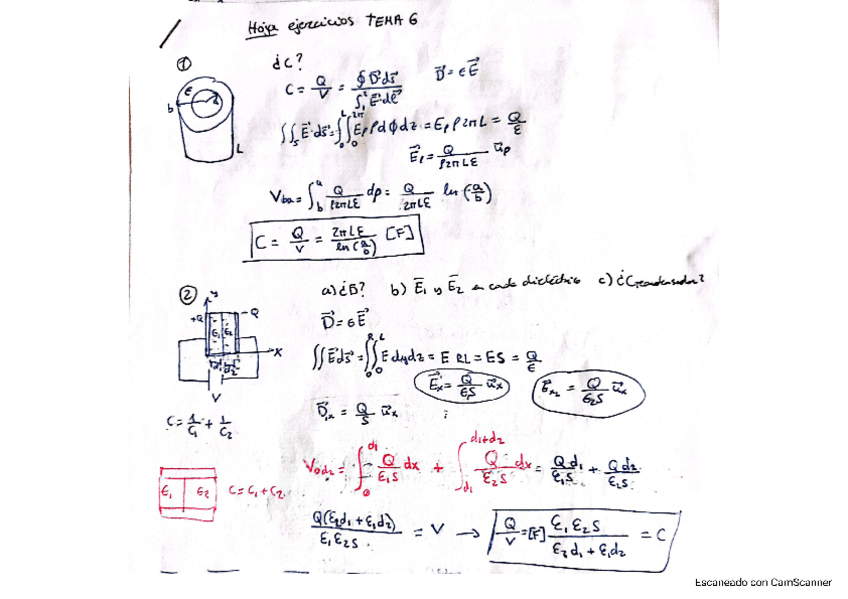 Hoja ejercicios TEMA 6
① ¿C?
C = Q/V = ∮D⃗·ds⃗ / ∫₁² E⃗·dl⃗   D⃗ = εE⃗
ε
b
a
L
∬ₛ E⃗·ds⃗ = ∫₀ᴸ∫₀²π Eρ ρ dϕ dz = Eρ ρ 2πL = Q/ε
E⃗ρ = Q/(ρ2πLε) u⃗ρ
Vba = ∫_b^a Q/(ρ2πLε) dρ = Q/(2πLε) ln(a/b)
C = Q/V = 2πLε/ln(a/b) [F]
② a) ¿D⃗? b) E⃗₁ y E⃗₂ en cada dieléctrico c) ¿Ccondensador?
D⃗ = εE⃗
y
+Q
-Q
ε₁ ε₂
x
d₁ d₂
V
∬E⃗ds⃗ = ∫₀ᴿ∫₀ᴸ E dy dz = E RL = ES = Q/ε
E⃗x₁ = Q/(ε₁S) u⃗x   E⃗x₂ = Q/(ε₂S) u⃗x
D⃗x = Q/S u⃗x
C = 1/C₁ + 1/C₂
V₀d₂ = ∫₀^d₁ Q/(ε₁S) dx + ∫_d₁^(d₁+d₂) Q/(ε₂S) dx = Qd₁/(ε₁S) + Qd₂/(ε₂S)
ε₁ ε₂ C = C₁ + C₂
Q(ε₂d₁ + ε₁d₂)/(ε₁ε₂S) = V → Q/V = [F] ε₁ε₂S/(ε₂d₁ + ε₁d₂) = C
Escaneado con CamScanner